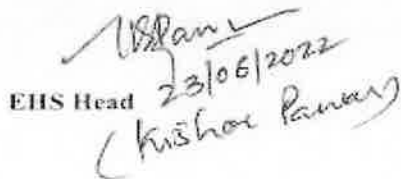 EHS Head 23/06/2022
(Kishor Panwar)